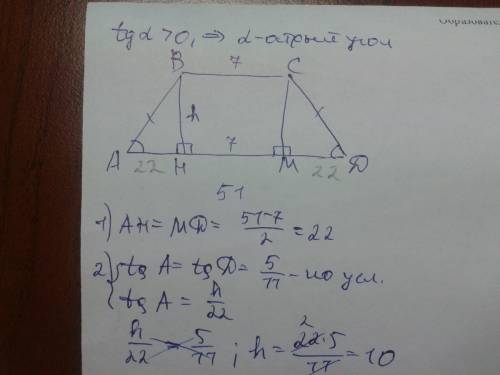 Образовате
tg α > 0, ⇒ α - острый угол
B 7 C
h
A 22 H 7 M 22 D
51
1) AH = MD = (51-7)/2 = 22
2) { tg A = tg D = 5/11 - по усл.
tg A = h/22
h/22 = 5/11 ; h = 22·5/11 = 10
2